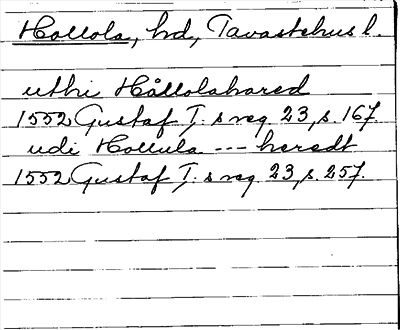 Hollola, hd, Tavastehus l.
uthi Hållolahared
1552 Gustaf I:s reg 23, s. 167.
udi Hollula --- heredt
1552 Gustaf I:s reg 23, s. 257.